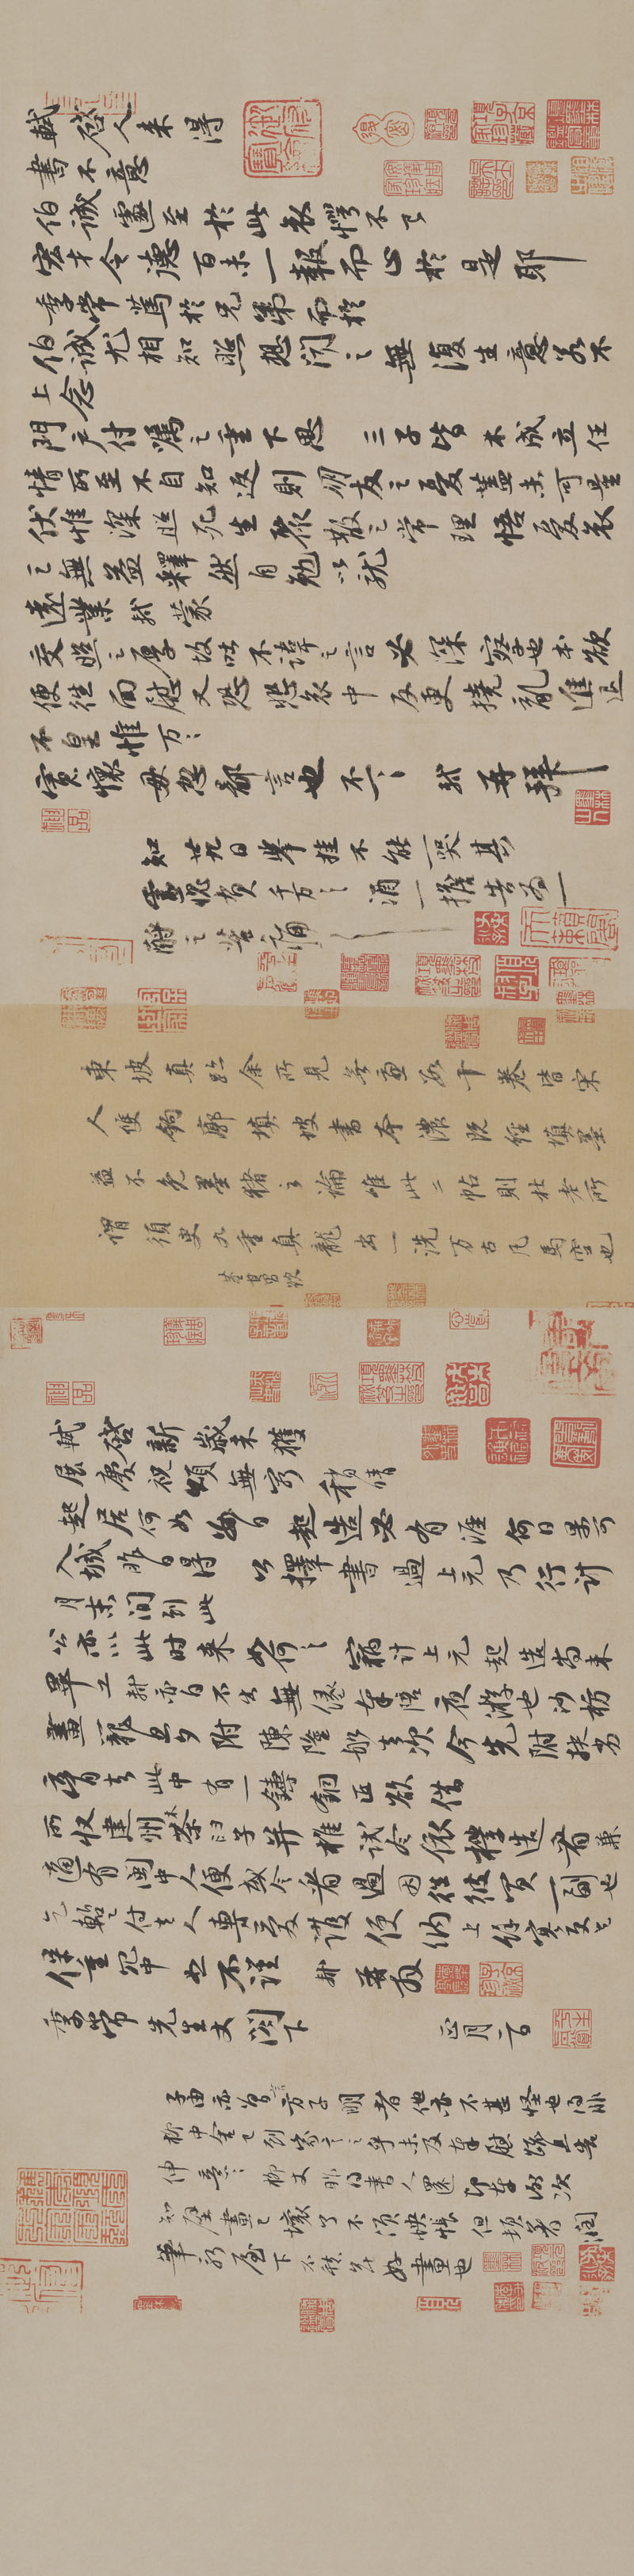 軾啓人來得
書不意
伯誠遽至於此哀愕不已
宏才令德百未一報而止於是耶
季常篤於兄弟而於
伯誠尤相知照想聞之無復生意若不
上念
門戶付囑之重下思三子皆未成立任
情所至不自知返則朋友之憂蓋未可量
伏惟深照死生聚散之常理悟憂哀
之無益釋然自勉以就
遠業軾蒙
交照之厚故吐不諱之言必深察也本欲
便往面慰又恐悲哀中反更撓亂進退
不皇惟萬萬
寬懷毋忽鄙言也不一一軾再拜
知廿九日舉掛不能一哭其
靈愧負千萬千萬酒一擔告為一
酹之苦痛苦痛
東坡真跡余所見無慮數十卷皆宋
人雙鉤廓填坡書本濃既經填墨
益不免墨豬之論唯此二帖則杜老所
謂須臾九重真龍出一洗萬古凡馬空也
董其昌跋
軾啓新歲未獲
展慶祝頌無窮稍晴
起居何如數日起造必有涯何日果可
入城昨日得公擇書過上元乃行計
月末間到此
公亦以此時來如何如何竊計上元起造尚未
畢工軾亦自不出無緣奉陪夜遊也沙枋
畫籠旦夕附陳隆船去次今先附扶劣
膏去此中有一鑄銅匠欲借
所收建州木茶臼子并椎試令依樣造看兼
適有閩中人便或令看過因往彼買一副也
乞暫付去人專愛護便納上餘寒更乞
保重冗中恕不謹軾再拜
季常先生丈閣下正月二日
子由亦曾言方子明者他亦不甚怪也得非
柳中舍已到家言之乎未及奉慰疏且告
伸意伸意柳丈昨得書人還即奉謝次
知壁畫已壞了不須怏悵但頓著潤
筆新屋下不愁無好畫也